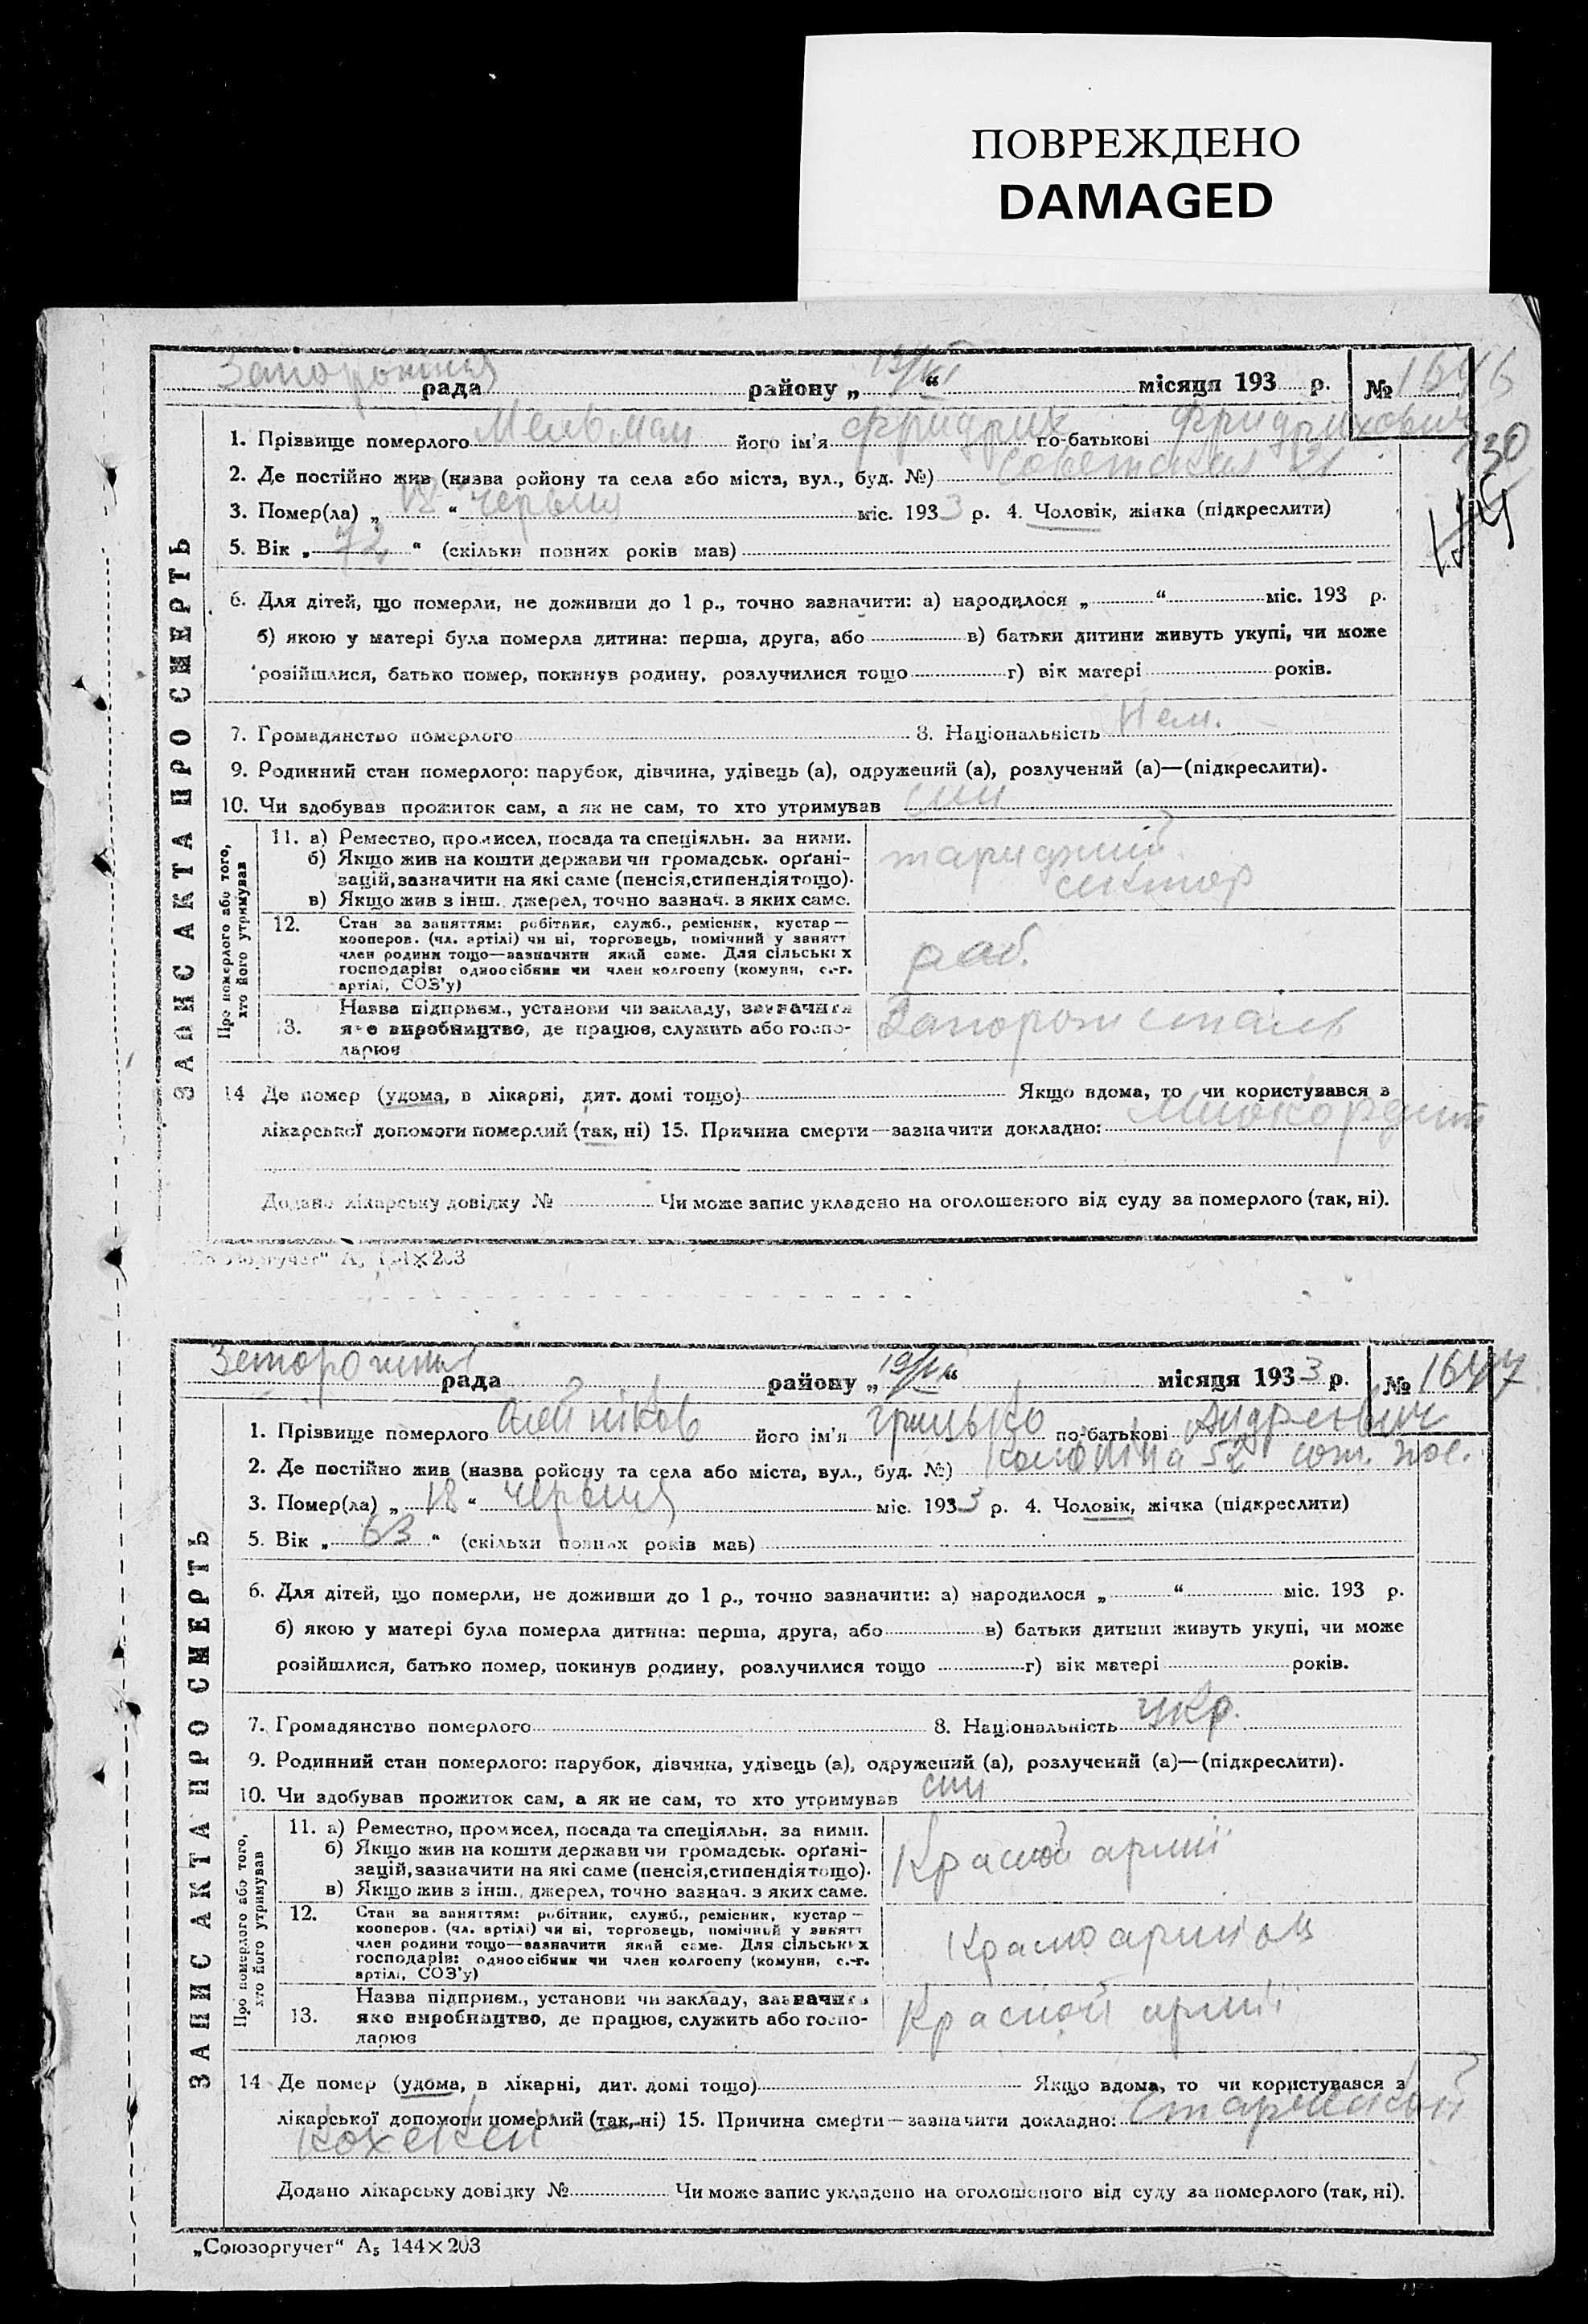 ПОВРЕЖДЕНО
DAMAGED
рада району „ “ місяця 193 р. № 1646
1. Прізвище померлого Мельман його ім'я Фридрих по-батькові Фридрихович
130
2. Де постійно жив (назва ройону та села або міста, вул., буд. №) Советская 21
3. Помер(ла) „ 18 “ червня міс. 1933 р. 4. Чоловік, жінка (підкреслити)
5. Вік „ 72 “ (скільки повних років мав)
6. Для дітей, що померли, не доживши до 1 р., точно зазначити: а) народилося „ “ міс. 193 р.
б) якою у матері була померла дитина: перша, друга, або в) батьки дитини живуть укупі, чи може
розійшлися, батько помер, покинув родину, розлучилися тощо г) вік матері років.
7. Громадянство померлого 8. Національність Нем.
9. Родинний стан померлого: парубок, дівчина, удівець (а), одружений (а), розлучений (а)—(підкреслити).
10. Чи здобував прожиток сам, а як не сам, то хто утримував син
Про померлого або того, хто його утримував
11. а) Ремество, промисел, посада та спеціяльн. за ними.
б) Якщо жив на кошти держави чи громадськ. орґані-
зацій, зазначити на які саме (пенсія, стипендія тощо).
в) Якщо жив з інш. джерел, точно зазнач. з яких саме.
сектор
12. Стан за заняттям: робітник, служб., ремісник, кустар —
кооперов. (чл. артілі) чи ні, торговець, помічний у занятт
член родини тощо—зазначити який саме. Для сільських
господарів: одноосібник чи член колгоспу (комуни, с.-г.
артілі, СОЗ'у)
раб.
13. Назва підприєм., установи чи закладу, зазначити
яке виробництво, де працює, служить або госпо-
дарює
Запорожсталь
14 Де помер (удома, в лікарні, дит. домі тощо) Якщо вдома, то чи користувався з
лікарської допомоги померлий (так, ні) 15. Причина смерти—зазначити докладно: Миокордит
Додано лікарську довідку № Чи може запис укладено на оголошеного від суду за померлого (так, ні).
ЗАПИС АКТА ПРО СМЕРТЬ
„Союзоргучет“ А₅ 144×203
рада району „ 19/VI “ місяця 1933 р. № 1647
1. Прізвище померлого Олейніков його ім'я Грицько по-батькові Андреевич
2. Де постійно жив (назва ройону та села або міста, вул., буд. №) 52
3. Помер(ла) „ 18 “ червня міс. 1933 р. 4. Чоловік, жінка (підкреслити)
5. Вік „ 63 “ (скільки повних років мав)
6. Для дітей, що померли, не доживши до 1 р., точно зазначити: а) народилося „ “ міс. 193 р.
б) якою у матері була померла дитина: перша, друга, або в) батьки дитини живуть укупі, чи може
розійшлися, батько помер, покинув родину, розлучилися тощо г) вік матері років.
7. Громадянство померлого 8. Національність укр.
9. Родинний стан померлого: парубок, дівчина, удівець (а), одружений (а), розлучений (а)—(підкреслити).
10. Чи здобував прожиток сам, а як не сам, то хто утримував син
Про померлого або того, хто його утримував
11. а) Ремество, промисел, посада та спеціяльн. за ними.
б) Якщо жив на кошти держави чи громадськ. орґані-
зацій, зазначити на які саме (пенсія, стипендія тощо).
в) Якщо жив з інш. джерел, точно зазнач. з яких саме.
Красной армії
12. Стан за заняттям: робітник, служб., ремісник, кустар —
кооперов. (чл. артілі) чи ні, торговець, помічний у занятт
член родини тощо—зазначити який саме. Для сільських
господарів: одноосібник чи член колгоспу (комуни, с.-г.
артілі, СОЗ'у)
13. Назва підприєм., установи чи закладу, зазначити
яке виробництво, де працює, служить або госпо-
дарює
Красной армії
14 Де помер (удома, в лікарні, дит. домі тощо) Якщо вдома, то чи користувався з
лікарської допомоги померлий (так, ні) 15. Причина смерти—зазначити докладно: Старческий
Додано лікарську довідку № Чи може запис укладено на оголошеного від суду за померлого (так, ні).
ЗАПИС АКТА ПРО СМЕРТЬ
„Союзоргучет“ А₅ 144×203